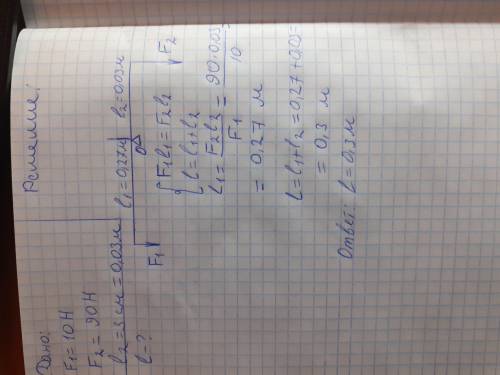 Дано:
F₁ = 10Н
F₂ = 90Н
l₂ = 3 см = 0,03м
l = ?
Решение:
l₁ = 0,27м l₂ = 0,03м
0
F₁ F₂
F₁l₁ = F₂l₂
l = l₁ + l₂
l₁ = F₂l₂ / F₁ = 90·0,03 / 10
= 0,27 м
l = l₁ + l₂ = 0,27 + 0,03 =
= 0,3 м
Ответ: l = 0,3м